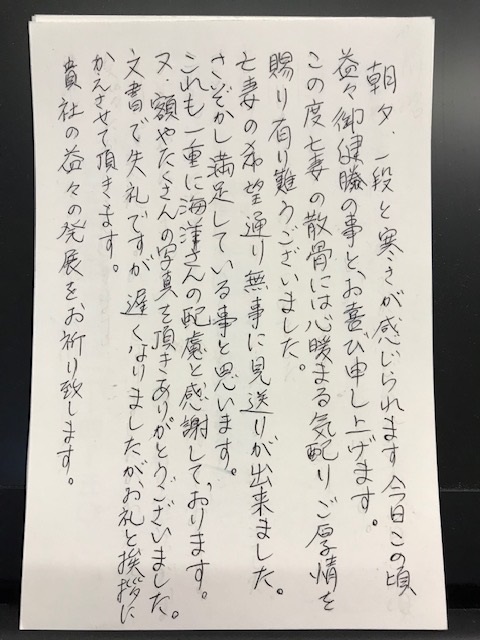 朝夕、一段と寒さが感じられます今日この頃
益々御健勝の事と、お喜び申し上げます。
この度亡妻の散骨には心暖まる気配り、ご厚情を
賜り有り難うございました。
亡妻の希望通り無事に見送りが出来ました。
さぞかし満足している事と思います。
これも一重に海洋さんの配慮と感謝しております。
又、額やたくさんの写真を頂きありがとうございました。
文書で失礼ですが遅くなりましたが、お礼と挨拶に
かえさせて頂きます。
貴社の益々の発展をお祈り致します。